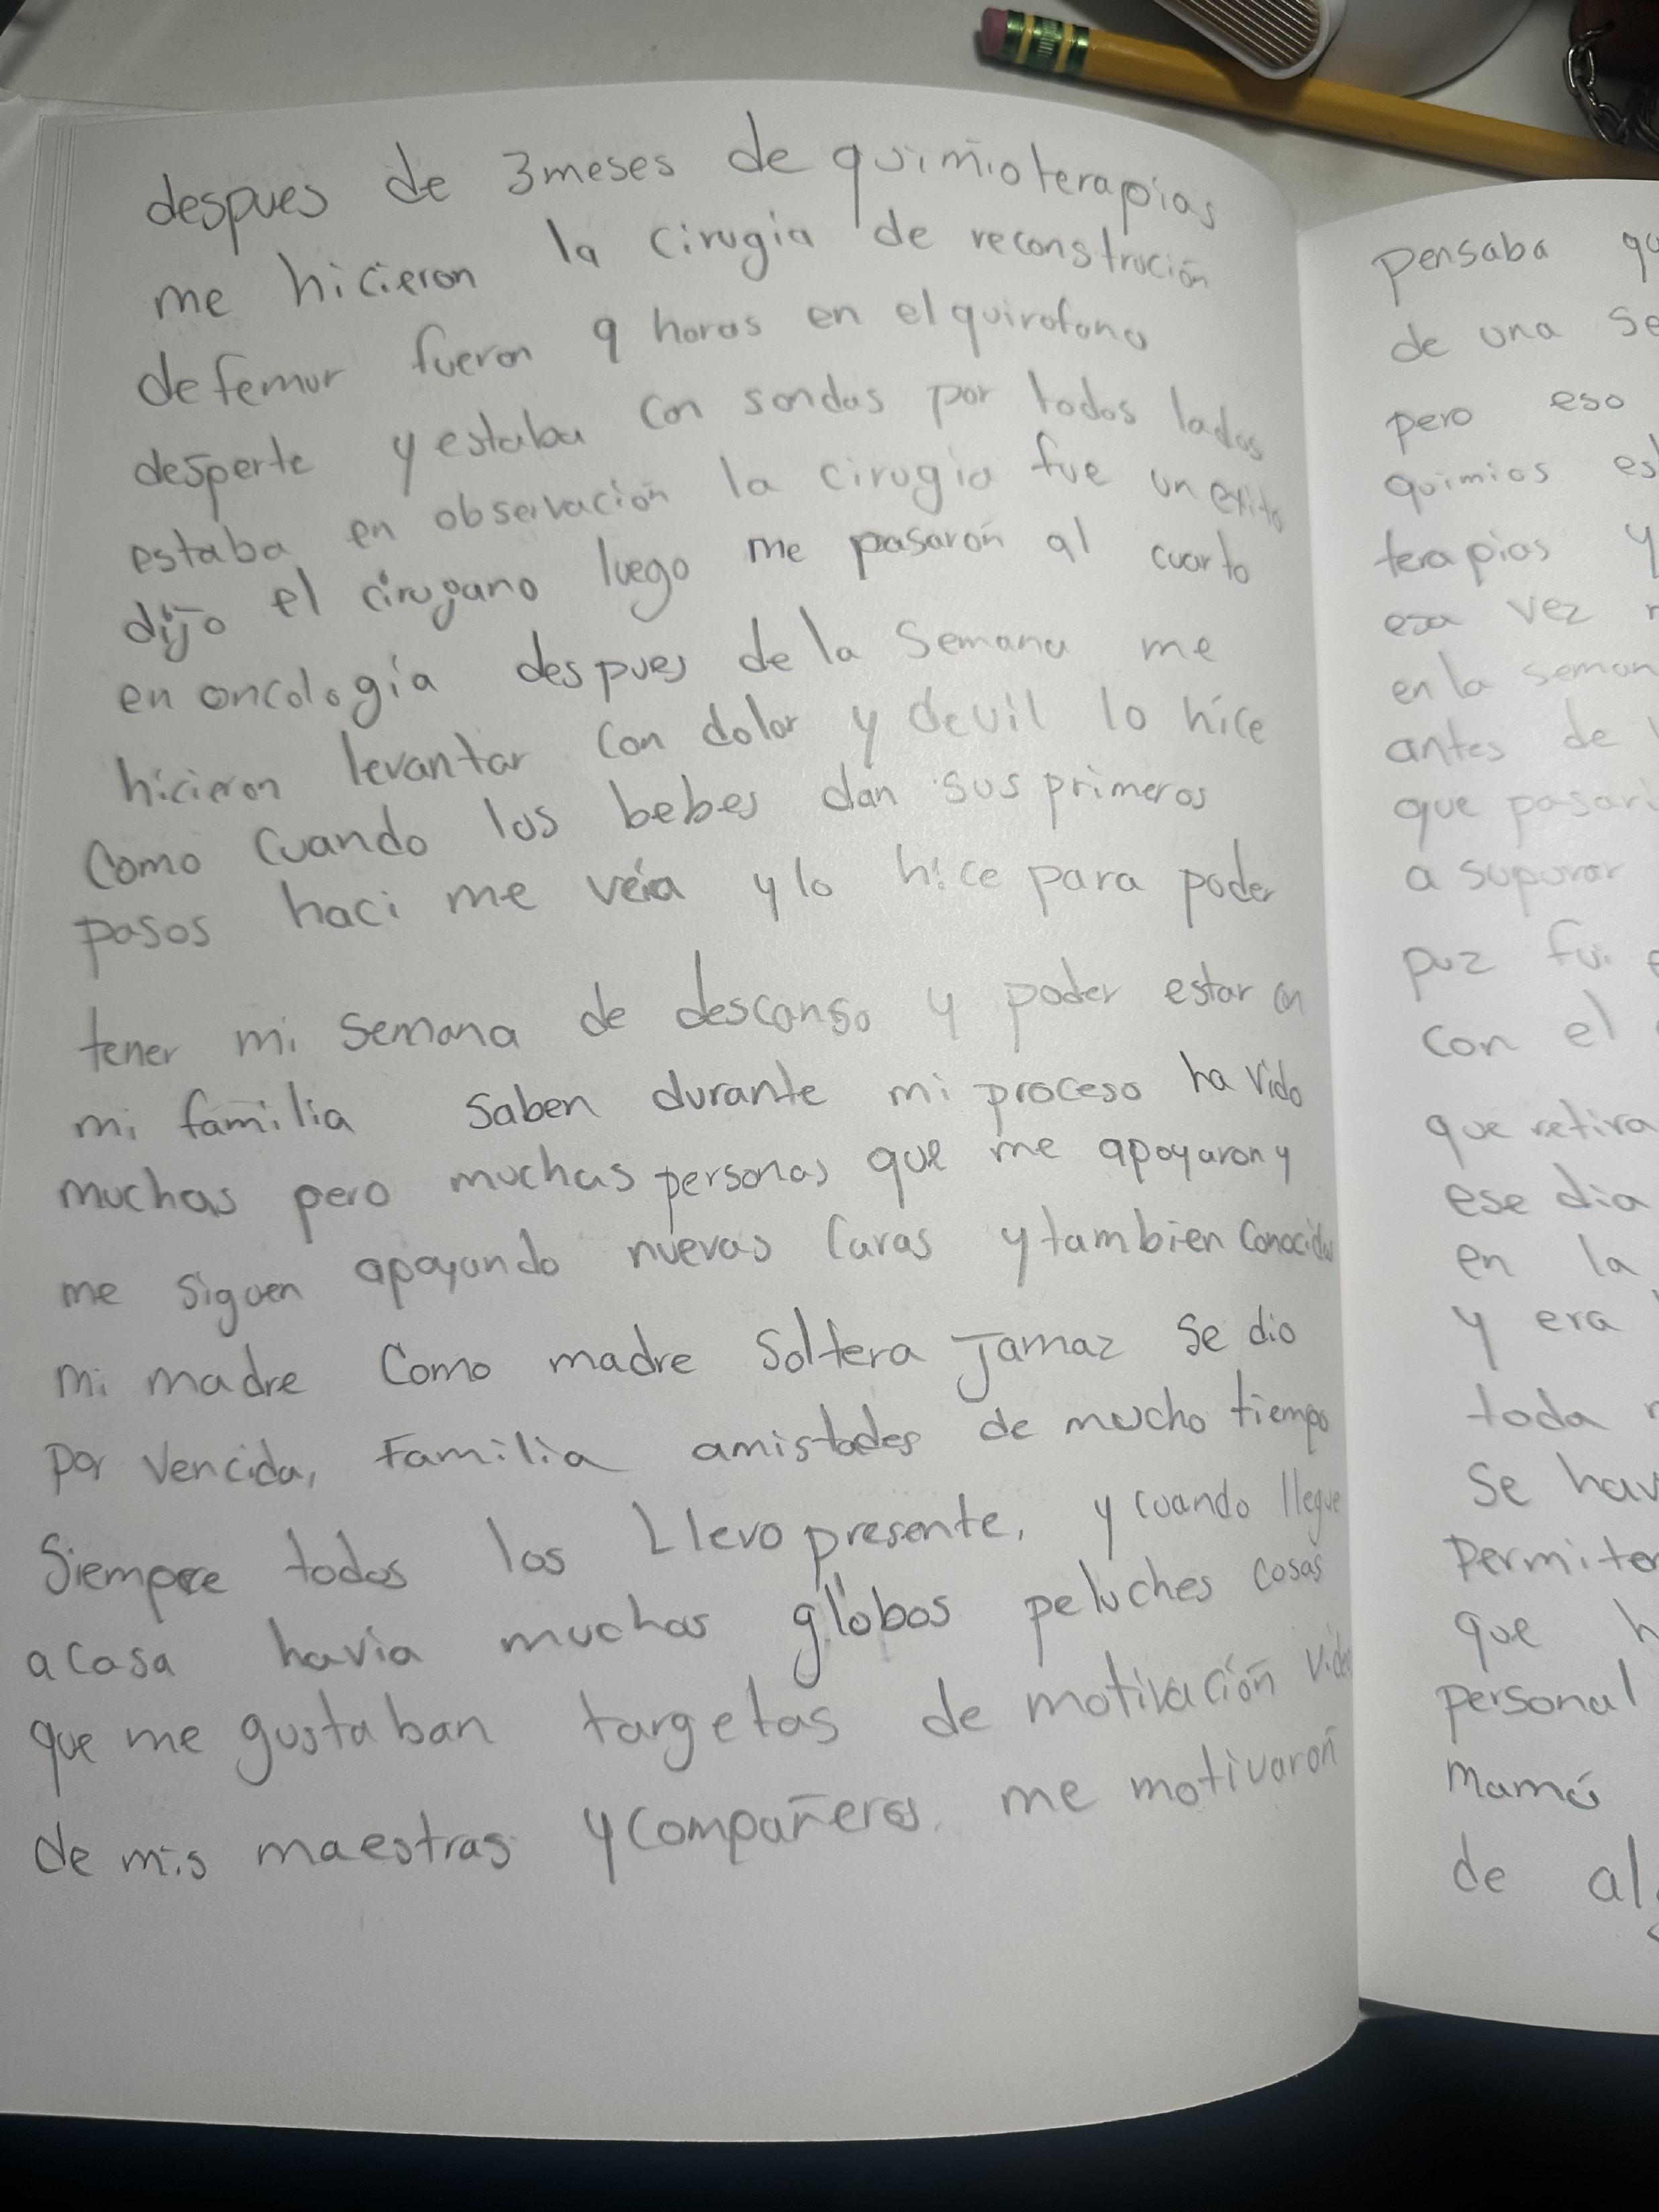 despues de 3 meses de quimioterapias
me hicieron la cirugia de reconstrución
de femur fueron 9 horas en el quirofono
desperte y estaba con sondas por todos lados
estaba en observación la cirugia fue un exito
dijo el cirugano luego me pasarón al cuarto
en oncología despues de la semana me
hicieron levantar con dolor y devil lo hice
como cuando los bebes dan sus primeros
pasos haci me veía y lo hice para poder
tener mi semana de descanso y poder estar con
mi familia saben durante mi proceso ha vido
muchas pero muchas personas que me apoyaron y
me siguen apoyando nuevas caras y tambien conocidas
mi madre como madre soltera jamaz se dio
por vencida, familia amistades de mucho tiempo
siempre todos los llevo presente, y cuando llegue
a casa havia muchos globos peluches cosas
que me gustaban targetas de motivación
de mis maestras y compañeros. me motivarón
pensaba
de una
pero eso
quimios
terapias y
esa vez
en la
antes de
que
a
puz fui
con el
que retira
ese dia
en la
y era
toda
se

que
personal
mamá
de